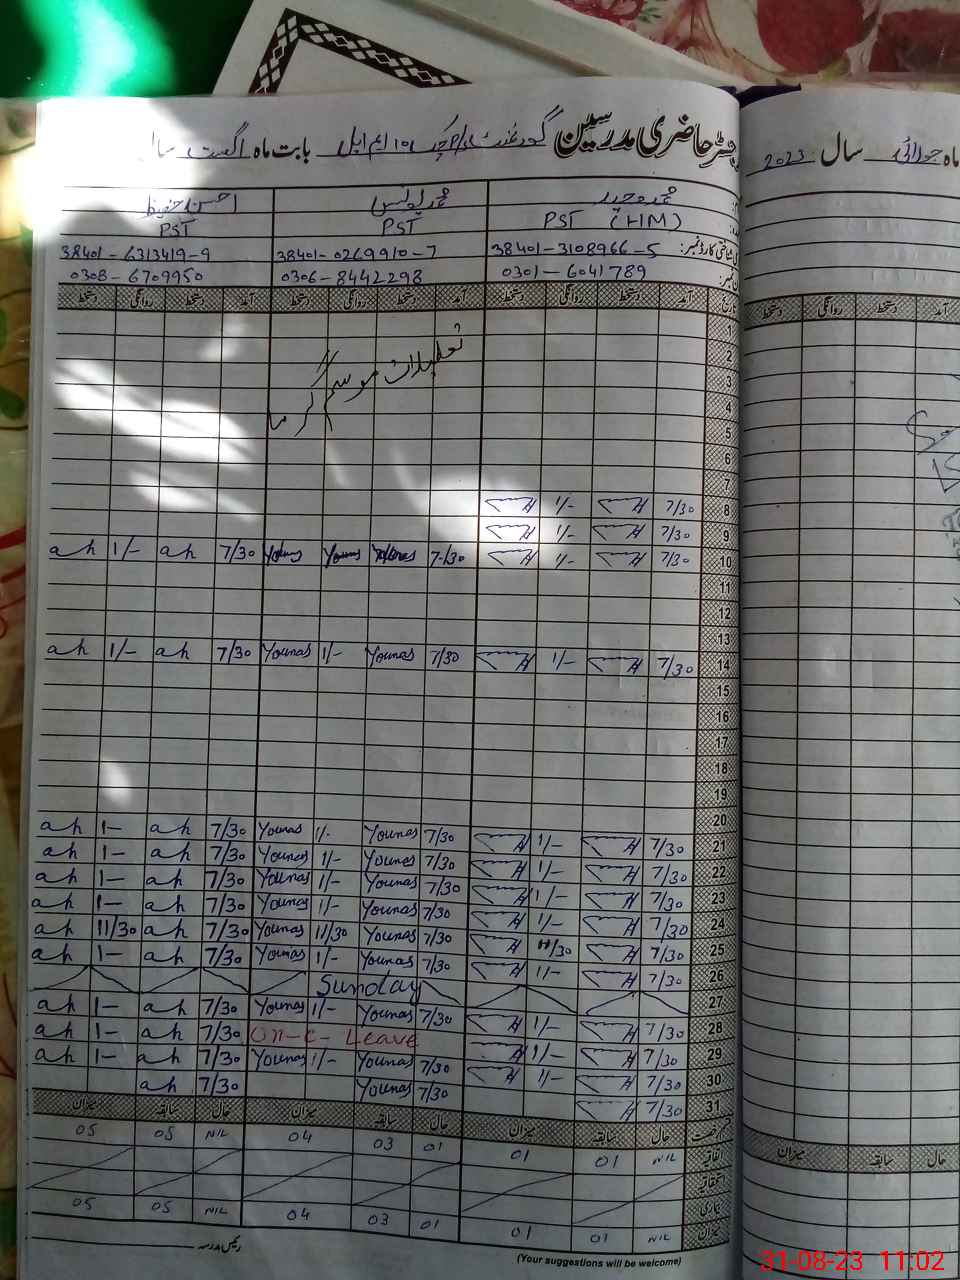 رجسٹر حاضری مدرسین گورنمنٹ بابت ماہ اگست سال
محمد وحید محمد یونس احسن حفیظ
PST (HM) PST PST
38401-3108966-5 38401-0269910-7 38401-6313419-9
0301-6041789 0306-8442298 0308-6709950
تاریخ آمد دستخط روانگی دستخط آمد دستخط روانگی دستخط آمد دستخط روانگی دستخط
1
2
تعطیلات موسم گرما
3
4
5
6
7
8 7/30 1/-
9 7/30 1/-
10 7/30 1/- 7/30 Younas Younas Younas 7/30 ah 1/- ah
11
12
13
14 7/30 1/- 7/30 Younas 1/- Younas 7/30 ah 1/- ah
15
16
17
18
19
20
21 7/30 1/- 7/30 Younas 1/- Younas 7/30 ah 1- ah
22 7/30 1/- 7/30 Younas 1/- Younas 7/30 ah 1- ah
23 7/30 1/- 7/30 Younas 1/- Younas 7/30 ah 1- ah
24 7/30 1/- 7/30 Younas 1/- Younas 7/30 ah 1- ah
25 7/30 11/30 7/30 Younas 11/30 Younas 7/30 ah 11/30 ah
26 7/30 1/- 7/30 Younas 1/- Younas 7/30 ah 1- ah
27 Sunday
28 7/30 1/- 7/30 Younas 1/- Younas 7/30 ah 1- ah
29 7/30 1/- On-C-Leave 7/30 ah 1- ah
30 7/30 1/- 7/30 Younas 1/- Younas 7/30 ah 1- ah
31 7/30 7/30 Younas 7/30 ah
حال سابقہ میزان حال سابقہ میزان حال سابقہ میزان
اتفاقیہ NIL 01 01 01 03 04 NIL 05 05
استحقاقیہ
بیماری
میزان NIL 01 01 01 03 04 NIL 05 05
رئیس مدرسہ
(Your suggestions will be welcome)
ماہ جولائی سال 2023
آمد دستخط روانگی دستخط
حال سابقہ میزان
31-08-23 11:02